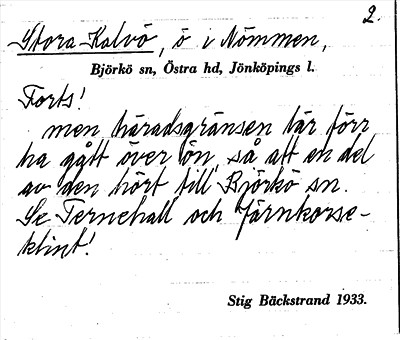 2.
Stora Kalvö, ö i Nömmen,
Björkö sn, Östra hd, Jönköpings l.
Forts!
men häradsgränsen lär förr
ha gått över ön, så att en del
av den hört till Björkö sn.
Se Ternehall och Järnkorse-
klint!
Stig Bäckstrand 1933.